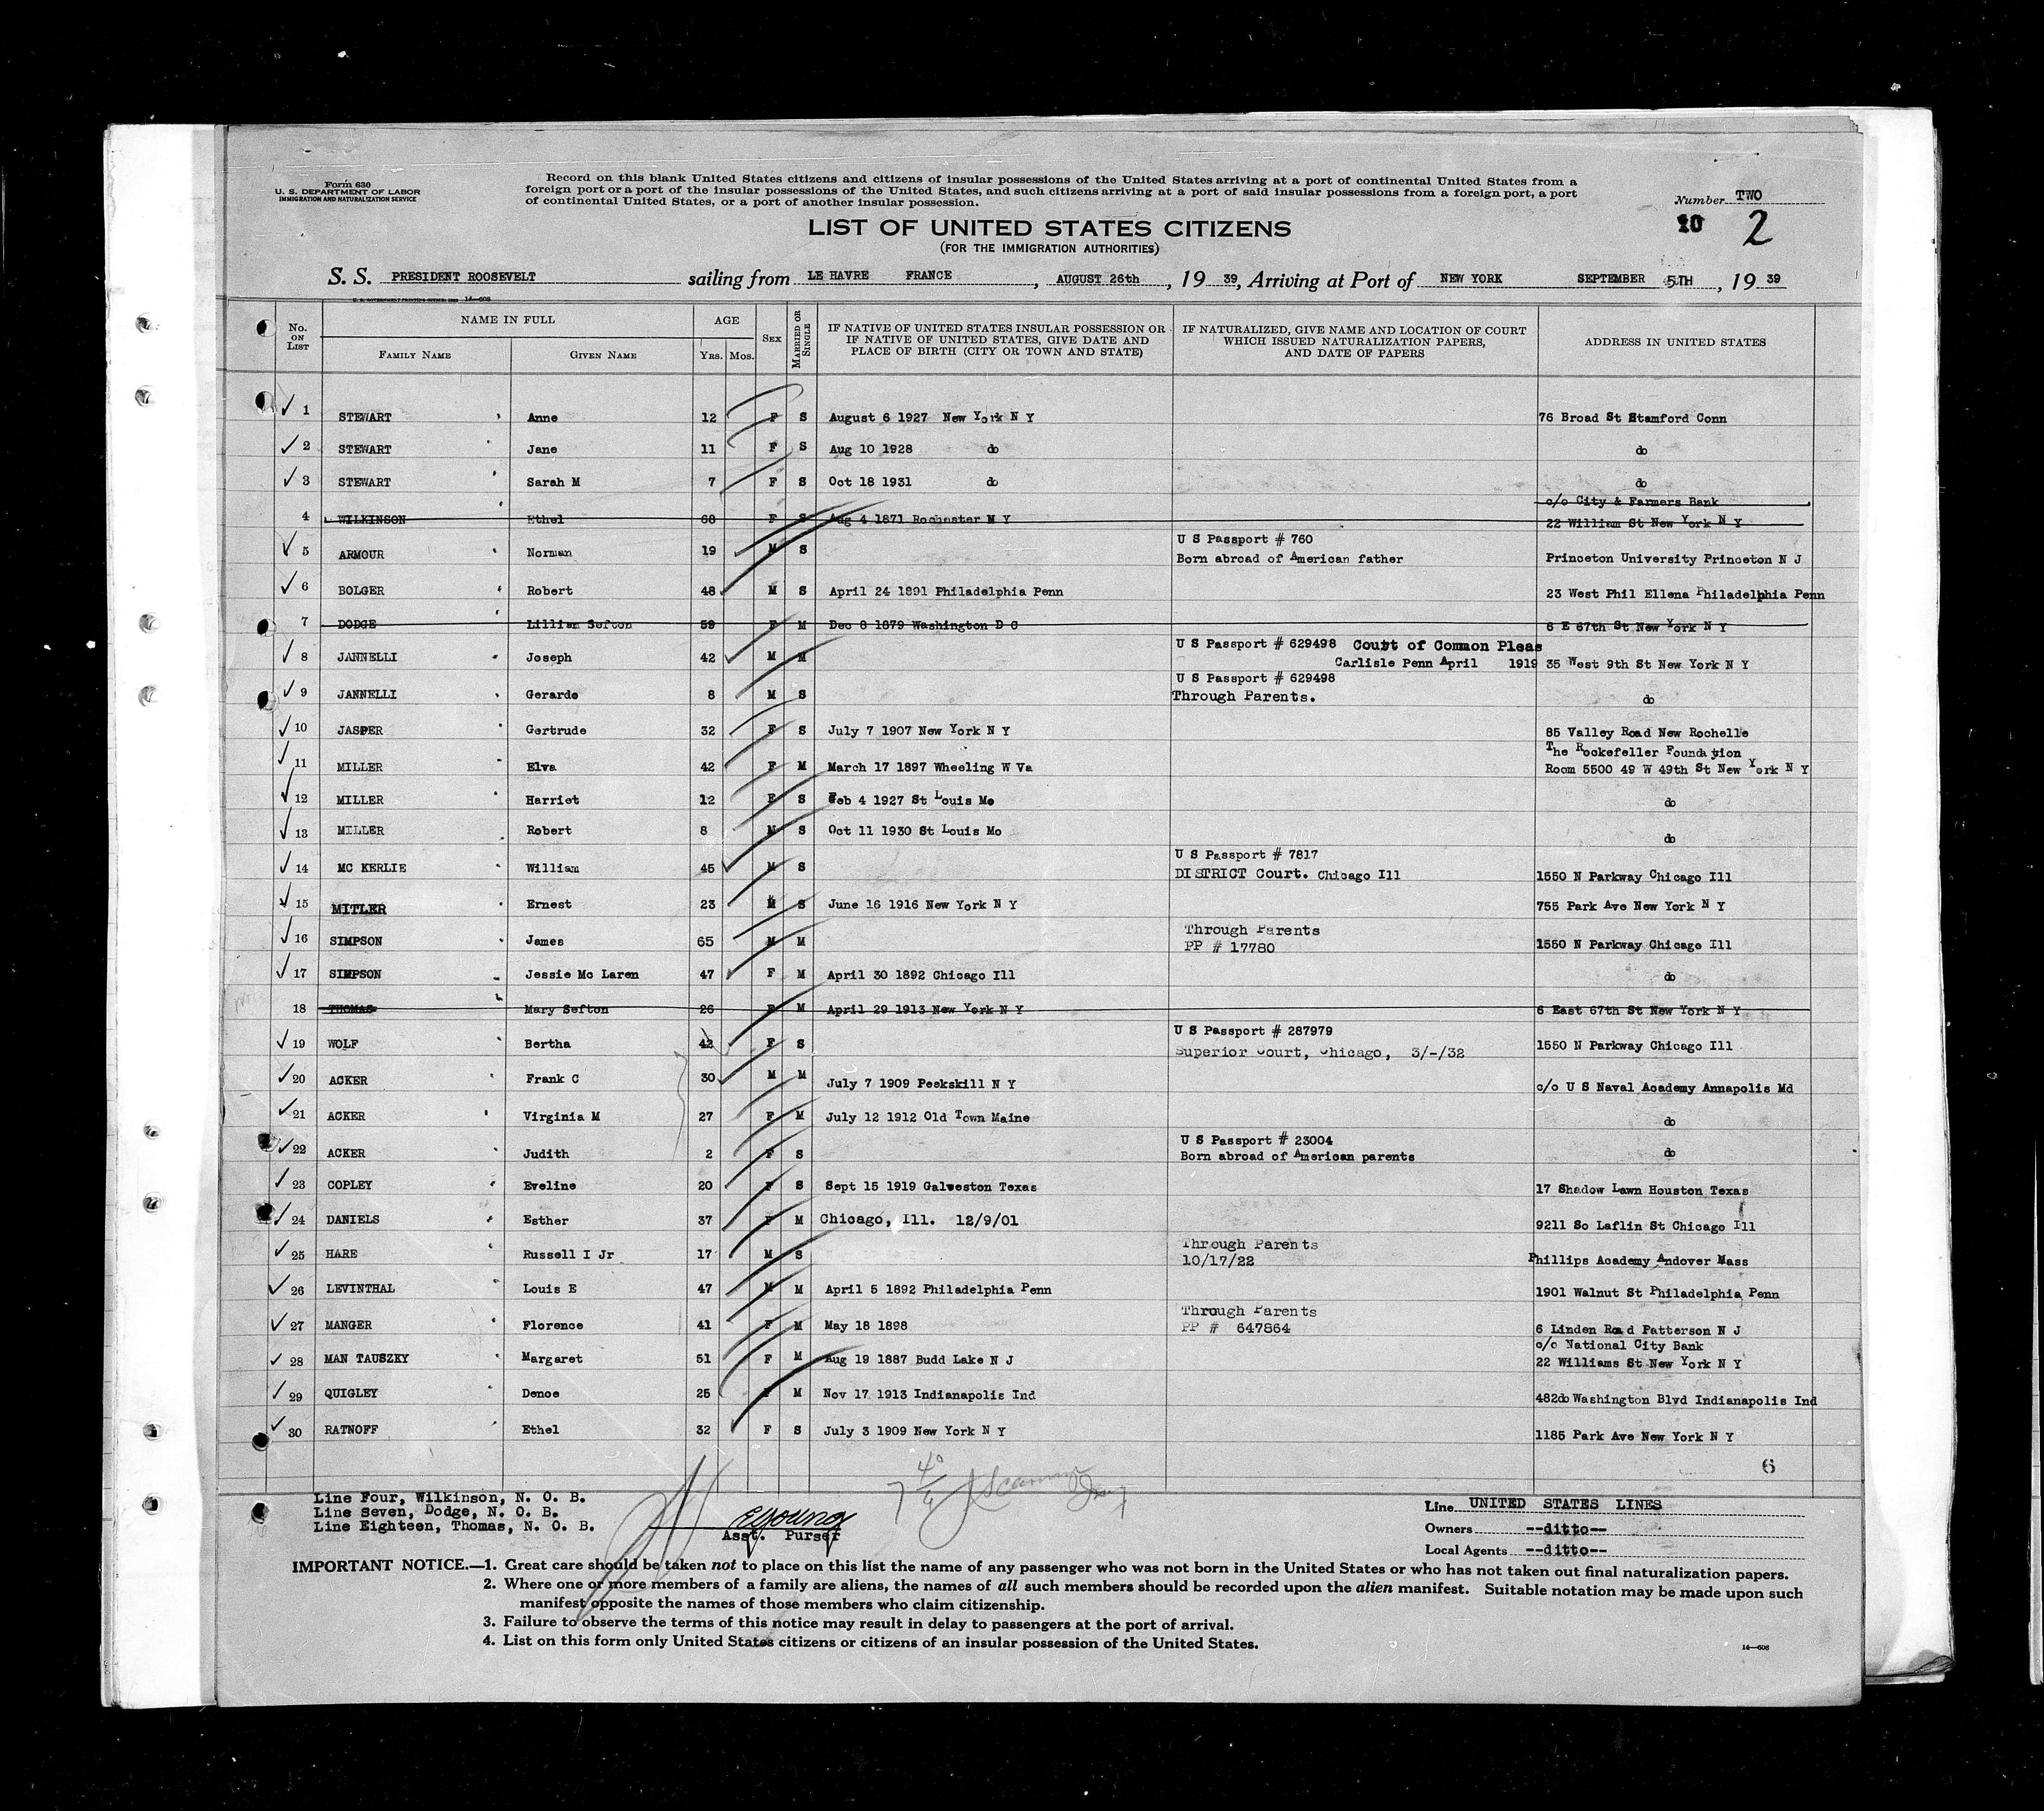 Form 630
U. S. DEPARTMENT OF LABOR
IMMIGRATION AND NATURALIZATION SERVICE
Record on this blank United States citizens and citizens of insular possessions of the United States arriving at a port of continental United States from a
foreign port or a port of the insular possessions of the United States, and such citizens arriving at a port of said insular possessions from a foreign port, a port
of continental United States, or a port of another insular possession.
Number TWO
10 2
LIST OF UNITED STATES CITIZENS
(FOR THE IMMIGRATION AUTHORITIES)
S. S. PRESIDENT ROOSEVELT sailing from LE HAVRE FRANCE, AUGUST 26th, 19 39, Arriving at Port of NEW YORK SEPTEMBER 5TH, 19 39
14—608
No. ON LIST NAME IN FULL AGE SEX MARRIED OR SINGLE IF NATIVE OF UNITED STATES INSULAR POSSESSION OR IF NATIVE OF UNITED STATES, GIVE DATE AND PLACE OF BIRTH (CITY OR TOWN AND STATE) IF NATURALIZED, GIVE NAME AND LOCATION OF COURT WHICH ISSUED NATURALIZATION PAPERS, AND DATE OF PAPERS ADDRESS IN UNITED STATES
FAMILY NAME GIVEN NAME YRS. MOS.
1 STEWART Anne 12 F S August 6 1927 New York N Y 76 Broad St Stamford Conn
2 STEWART Jane 11 F S Aug 10 1928 do do
3 STEWART Sarah M 7 F S Oct 18 1931 do do
c/o City & Farmers Bank
4 WILKINSON Ethel 68 F S Aug 4 1871 Rochester N Y 22 William St New York N Y
U S Passport # 760
5 ARMOUR Norman 19 M S Born abroad of American father Princeton University Princeton N J
6 BOLGER Robert 48 M S April 24 1891 Philadelphia Penn 23 West Phil Ellena Philadelphia Penn
7 DODGE Lillian Sefton 59 F M Dec 8 1879 Washington D C 6 E 67th St New York N Y
U S Passport # 629498 Court of Common Pleas
8 JANNELLI Joseph 42 M M Carlisle Penn April 1919 35 West 9th St New York N Y
U S Passport # 629498
9 JANNELLI Gerardo 8 M S Through Parents. do
10 JASPER Gertrude 32 F S July 7 1907 New York N Y 85 Valley Road New Rochelle
The Rockefeller Foundation
11 MILLER Elva 42 F M March 17 1897 Wheeling W Va Room 5500 49 W 49th St New York N Y
12 MILLER Harriet 12 F S Feb 4 1927 St Louis Mo do
13 MILLER Robert 8 M S Oct 11 1930 St Louis Mo do
U S Passport # 7817
14 MC KERLIE William 45 M S DISTRICT Court. Chicago Ill 1550 N Parkway Chicago Ill
15 MITLER Ernest 23 M S June 16 1916 New York N Y 755 Park Ave New York N Y
Through Parents
16 SIMPSON James 65 M M PP # 17780 1550 N Parkway Chicago Ill
17 SIMPSON Jessie Mc Laren 47 F M April 30 1892 Chicago Ill do
18 THOMAS Mary Sefton 26 F M April 29 1913 New York N Y 6 East 67th St New York N Y
U S Passport # 287979
19 WOLF Bertha 42 F S Superior Court, Chicago, 3/-/32 1550 N Parkway Chicago Ill
20 ACKER Frank C 30 M M July 7 1909 Peekskill N Y c/o U S Naval Academy Annapolis Md
21 ACKER Virginia M 27 F M July 12 1912 Old Town Maine do
U S Passport # 23004
22 ACKER Judith 2 F S Born abroad of American parents do
23 COPLEY Eveline 20 F S Sept 15 1919 Galveston Texas 17 Shadow Lawn Houston Texas
24 DANIELS Esther 37 F M Chicago, Ill. 12/9/01 9211 So Laflin St Chicago Ill
Through Parents
25 HARE Russell I Jr 17 M S 10/17/22 Phillips Academy Andover Mass
26 LEVINTHAL Louis E 47 M M April 5 1892 Philadelphia Penn 1901 Walnut St Philadelphia Penn
Through Parents
27 MANGER Florence 41 F M May 18 1898 PP # 647864 6 Linden Road Patterson N J
c/o National City Bank
28 MAN TAUSZKY Margaret 51 F M Aug 19 1887 Budd Lake N J 22 Williams St New York N Y
29 QUIGLEY Denoe 25 F M Nov 17 1913 Indianapolis Ind 482do Washington Blvd Indianapolis Ind
30 RATNOFF Ethel 32 F S July 3 1909 New York N Y 1185 Park Ave New York N Y
6
Line Four, Wilkinson, N. O. B.
Line Seven, Dodge, N. O. B.
Line Eighteen, Thomas, N. O. B.
EYoung
Asst. Purser
Line UNITED STATES LINES
Owners --ditto--
Local Agents --ditto--
IMPORTANT NOTICE.—1. Great care should be taken not to place on this list the name of any passenger who was not born in the United States or who has not taken out final naturalization papers.
2. Where one or more members of a family are aliens, the names of all such members should be recorded upon the alien manifest. Suitable notation may be made upon such
manifest opposite the names of those members who claim citizenship.
3. Failure to observe the terms of this notice may result in delay to passengers at the port of arrival.
4. List on this form only United States citizens or citizens of an insular possession of the United States.
14—608